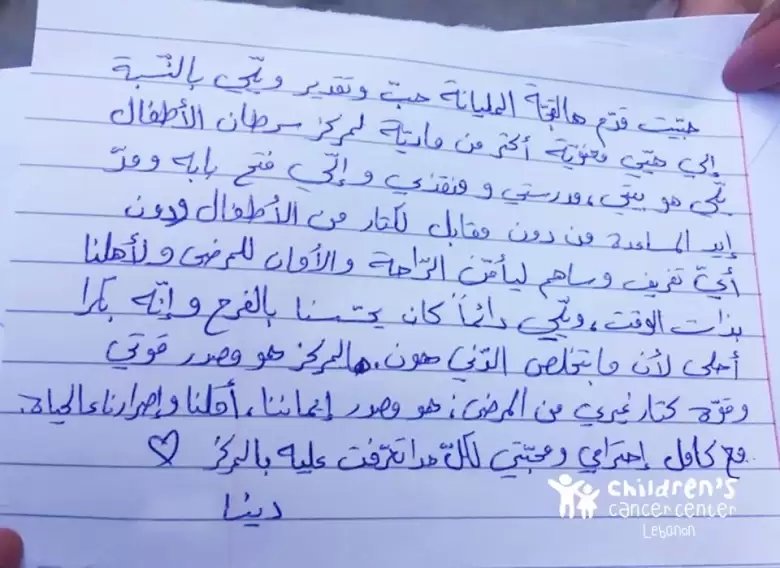 حبّيت قدّم هالقجّة المليانة حبّ وتقدير ويلّي بالنّسبة
إلي هيّي معنويّة أكتر من ماديّة لمركز سرطان الأطفال
يلّي هو بيتي، مدرستي و منقذي و إلّي فتح بابه ومدّ
إيد المساعدة من دون مقابل لكتار من الأطفال ودون
أيّ تفريق وساهم ليأمّن الرّاحة والأمان للمرضى ولأهلنا
بذات الوقت، ويلّي دائماً كان يحسّسنا بالفرح و إنّه بكرا
أحلى لأن ما بتخلص الدّني هون. هالمركز هو مصدر قوتي
وقوّة كتار غيري من المرضى؛ هو مصدر إيماننا، أملنا وإصرارنا عالحياة.
مع كامل إحترامي ومحبّتي لكلّ حدا تعرّفت عليه بالمركز ♡
دينا
children's
cancer center
Lebanon